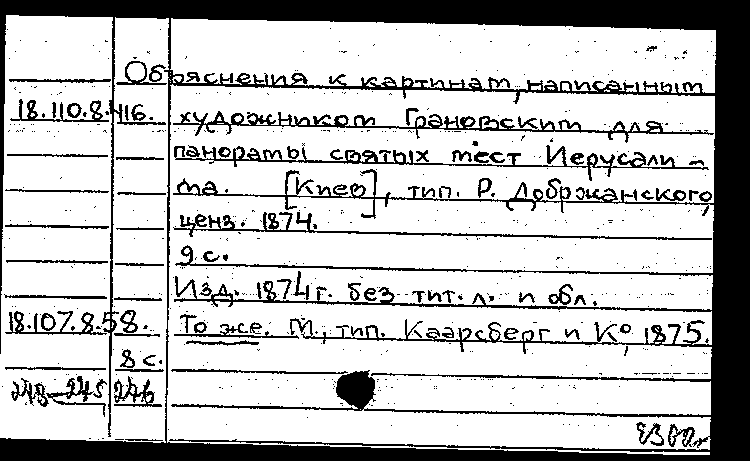 Объяснения к картинам, написанным
18.110.8.416. художником Грановским для
панорамы святых мест Иерусали-
ма. [Киев], тип. Р. Добржанского,
ценз. 1874.
9 с.
Изд. 1874 г. без тит. л. и обл.
18.107.8.58. То же. М., тип. Каарсберг и К°, 1875.
8 с.
246